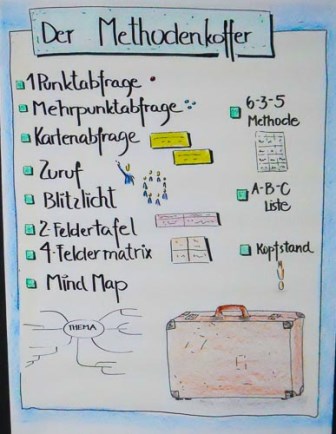 Der Methodenkoffer
1Punktabfrage
Mehrpunktabfrage
Kartenabfrage
Zuruf
Blitzlicht
2-Feldertafel
4-Feldermatrix
Mind Map
THEMA
6-3-5
Methode
A-B-C
Liste
Kopfstand